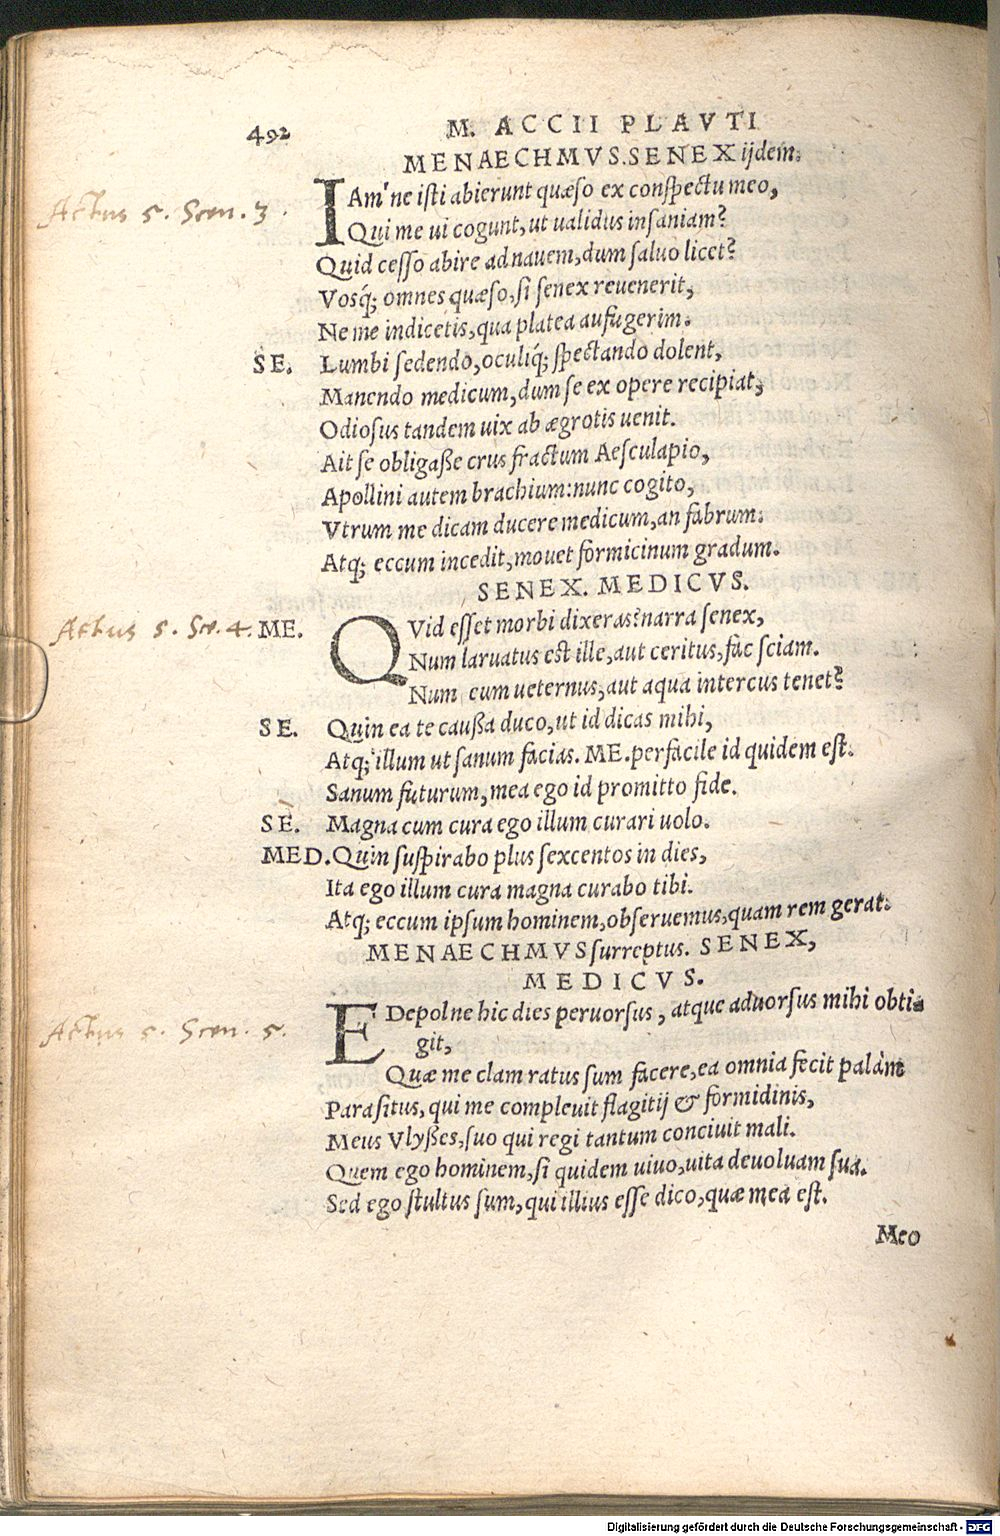 492 M. ACCII PLAVTI
MENAECHMVS. SENEX ijdem.
Actus 5. Scen. 3.
IAm'ne isti abierunt quæso ex conspectu meo,
Qui me ui cogunt, ut ualidus insaniam?
Quid cesso abire ad nauem, dum saluo licet?
Vosq; omnes quæso, si senex reuenerit,
Ne me indicetis, qua platea aufugerim.
SE. Lumbi sedendo, oculiq; spectando dolent,
Manendo medicum, dum se ex opere recipiat,
Odiosus tandem uix ab ægrotis uenit.
Ait se obligaße crus fractum Aesculapio,
Apollini autem brachium: nunc cogito,
Vtrum me dicam ducere medicum, an fabrum.
Atq; eccum incedit, mouet formicinum gradum.
SENEX. MEDICVS.
Actus 5. Sce. 4.
ME. QVid esset morbi dixeras? narra senex,
Num laruatus est ille, aut ceritus, fac sciam.
Num eum ueternus, aut aqua intercus tenet?
SE. Quin ea te caußa duco, ut id dicas mihi,
Atq; illum ut sanum facias. ME. perfacile id quidem est.
Sanum futurum, mea ego id promitto fide.
SE. Magna cum cura ego illum curari uolo.
MED. Quin suspirabo plus sexcentos in dies,
Ita ego illum cura magna curabo tibi.
Atq; eccum ipsum hominem, obseruemus, quam rem gerat.
MENAECHMVS surreptus. SENEX,
MEDICVS.
Actus 5. Scen. 5.
EDepol ne hic dies peruorsus, atque aduorsus mihi obti-
git,
Quæ me clam ratus sum facere, ea omnia fecit palàm
Parasitus, qui me compleuit flagitij & formidinis,
Meus Vlyßes, suo qui regi tantum conciuit mali.
Quem ego hominem, si quidem uiuo, uita deuoluam sua.
Sed ego stultus sum, qui illius esse dico, quæ mea est.
Meo
Digitalisierung gefördert durch die Deutsche Forschungsgemeinschaft - DFG